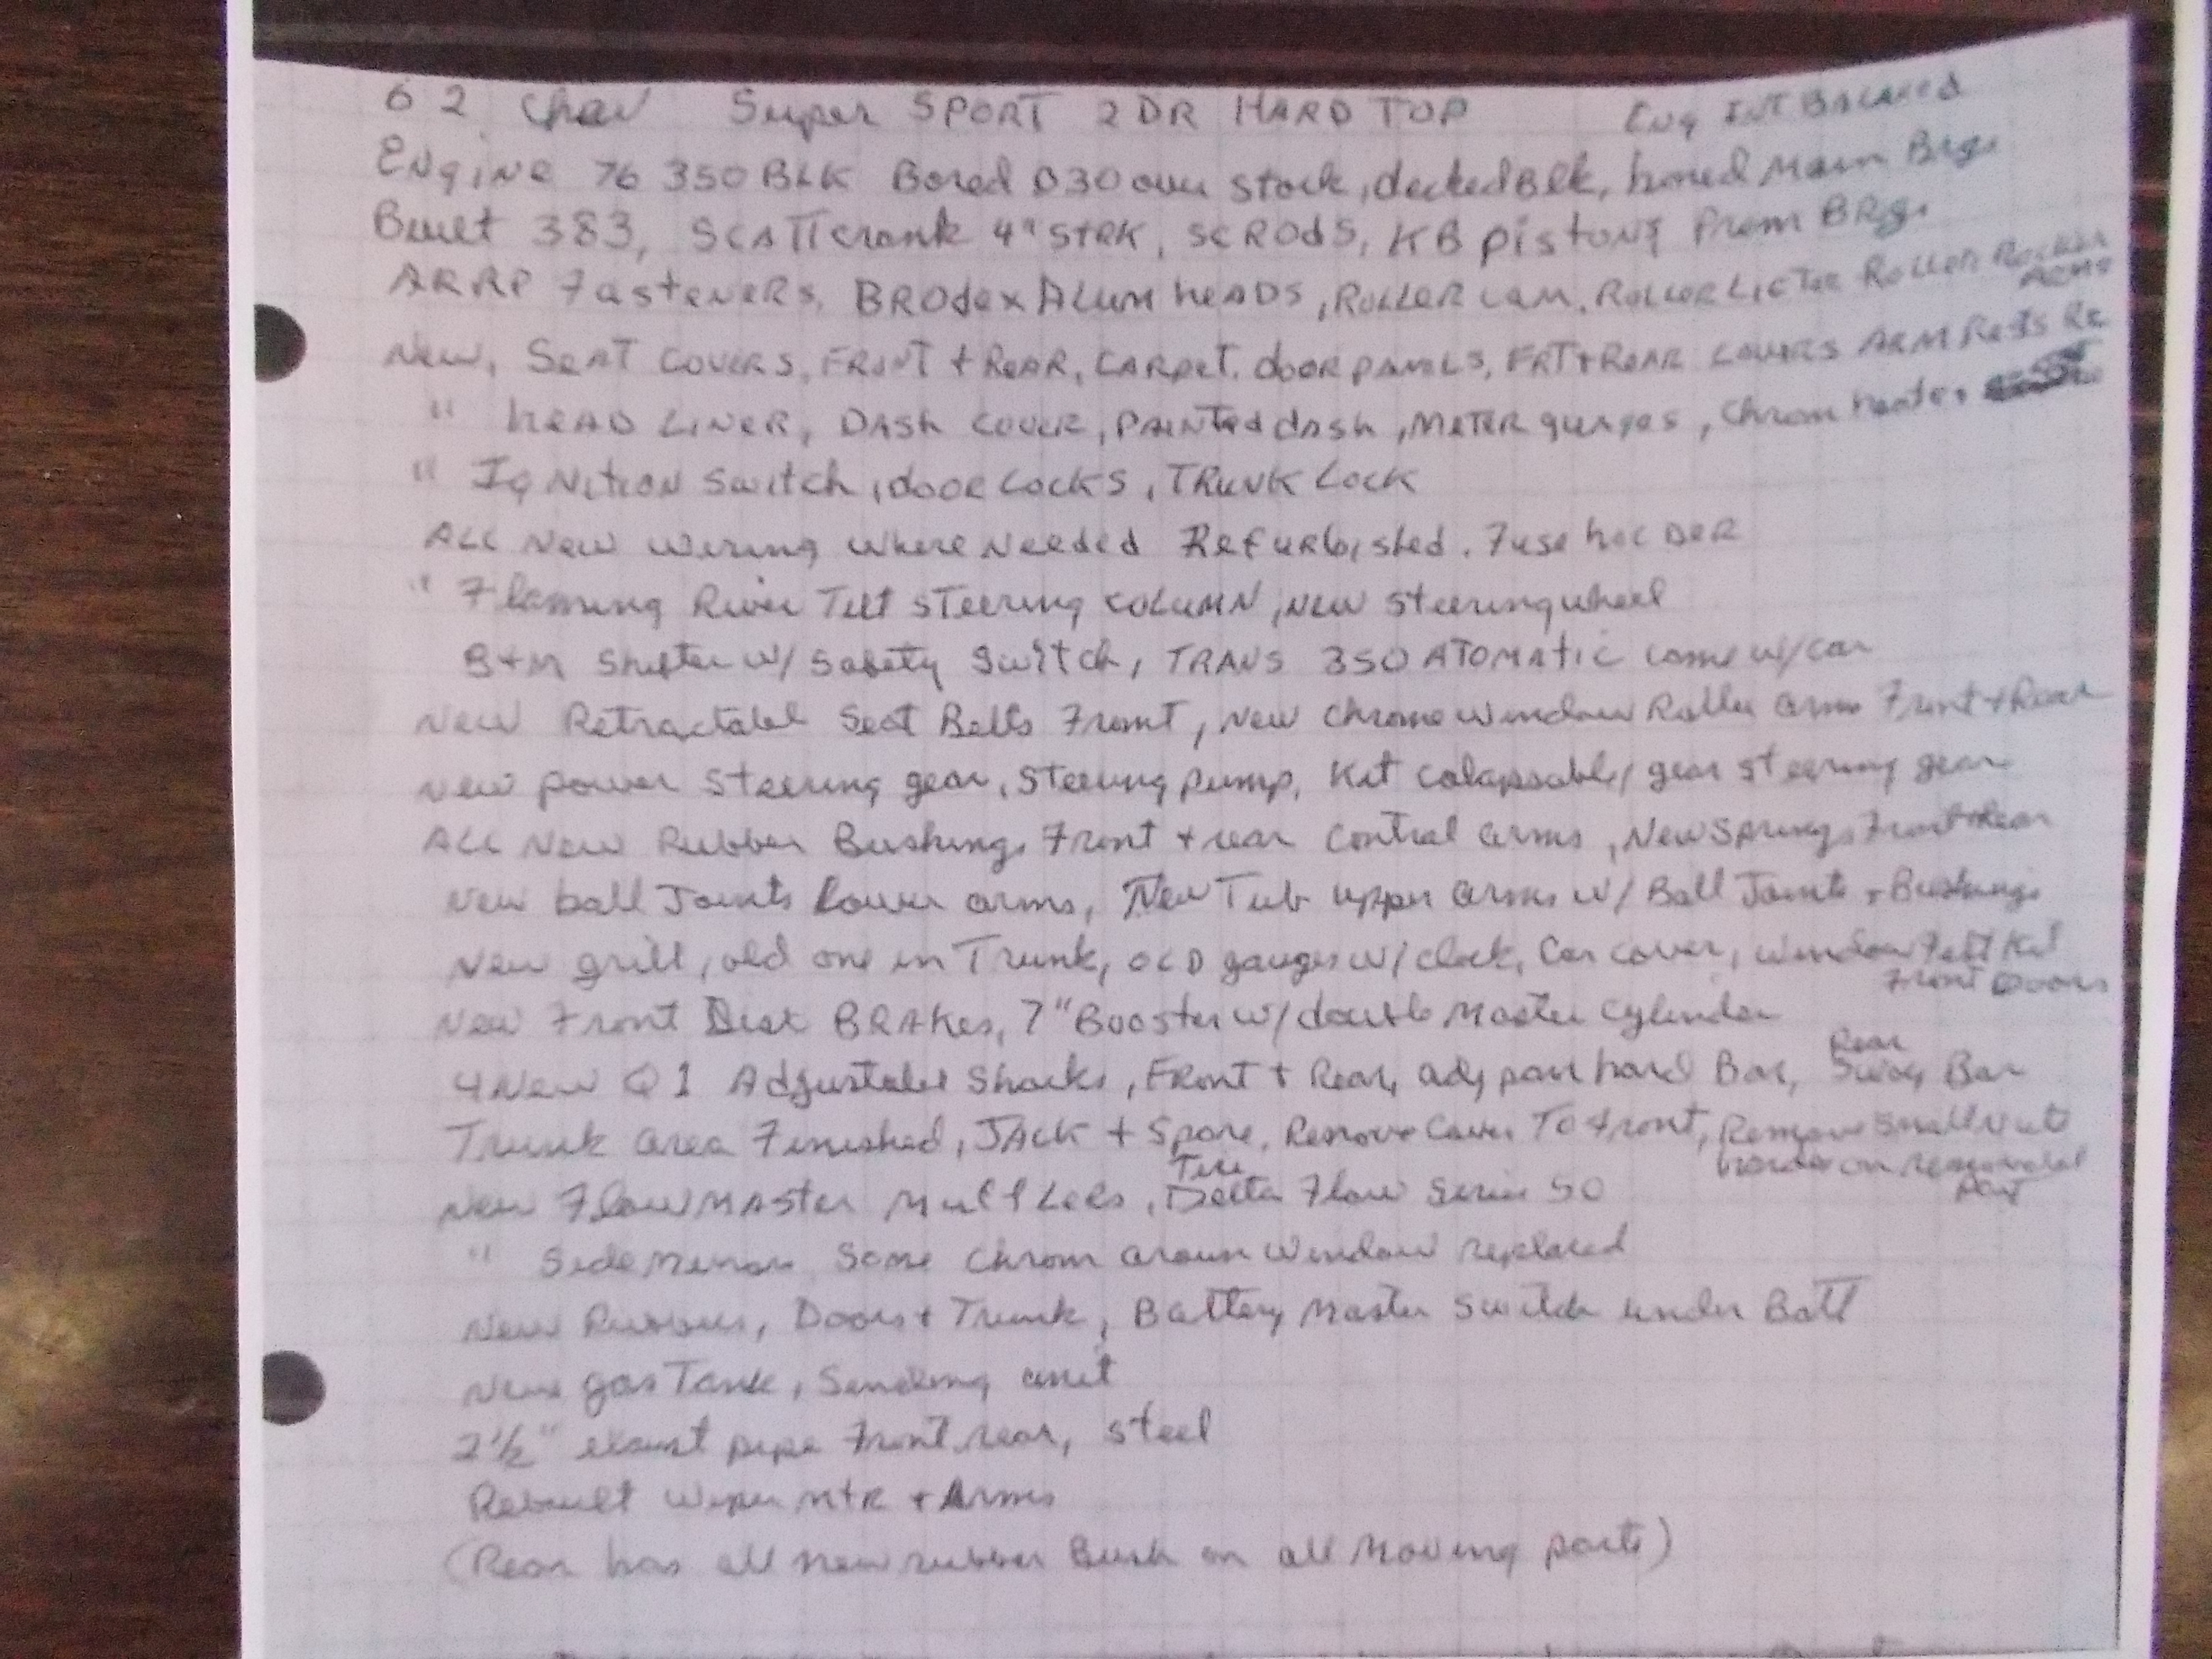 62 Chev Super SPORT 2 DR HARD TOP Eng INT Balanced
ENgiNe 76 350 BLK Bored 030 over stock, decked Blk, honed Main Brgs
Built 383, SCATT crank 4" STRK, SC RODS, KB pistons Prem BRgs
ARRP FasteNeRs, BROdex ALUM heADS, ROLLER CAM, ROLLER LIFTER ROLLER Rocker
ARMS
New, SeAT COVERS, FRONT + ReAR, CARPeT, dOOR pANeLS, FRT + ReAR COVERS ARM Rests Re
" heAD LiNeR, DASh COVER, PAINTed dash, MeTeR guages, Chrom heater
" IgNition Switch, dOOR LOCKS, TRUNK LOCK
ALL New Wiring Where Needed Refurbished. Fuse hoLDeR
" Flaming River Tilt STeering COLUMN, New Steering wheel
B+M Shifter W/ Safety Switch, TRANS 350 ATOMATiC came w/car
New Retractabl Seat Belts Front, New Chrome Window Roller arms Front + Rear
New power Steering gear, Steering pump, Kit colapsable gear steering gear
ALL New Rubber Bushings Front + rear Control arms, New Springs Front + Rear
New ball Joints Lower arms, New Tub upper arms W/ Ball Joints + Bushings
New grill, old one in Trunk, OLD gauges w/clock, Car Cover, Window Felt Kit
Front Doors
New Front Disk BRAKes, 7" Booster w/ double Master Cylinder
Rear
4 New Q1 Adjustabl Shocks, Front + Rear, adj pan hard Bar, Sway Bar
Trunk area Finished, JACK + Spare, Remove Cover To Front, Remove Small Nuts
on
part
New FlowMASTer MuffLeRs, Delta Flow Series 50
" Side Mirrors Some Chrom aroun Window replaced
New Rubbers, Doors + Trunk, Battery Master Switch under Batt
New gas Tank, Sending unit
2½" exaust pipe Front, rear, steel
Rebuilt Wiper MTR + Arms
(Rear has all new rubber Bush on all Moving parts)